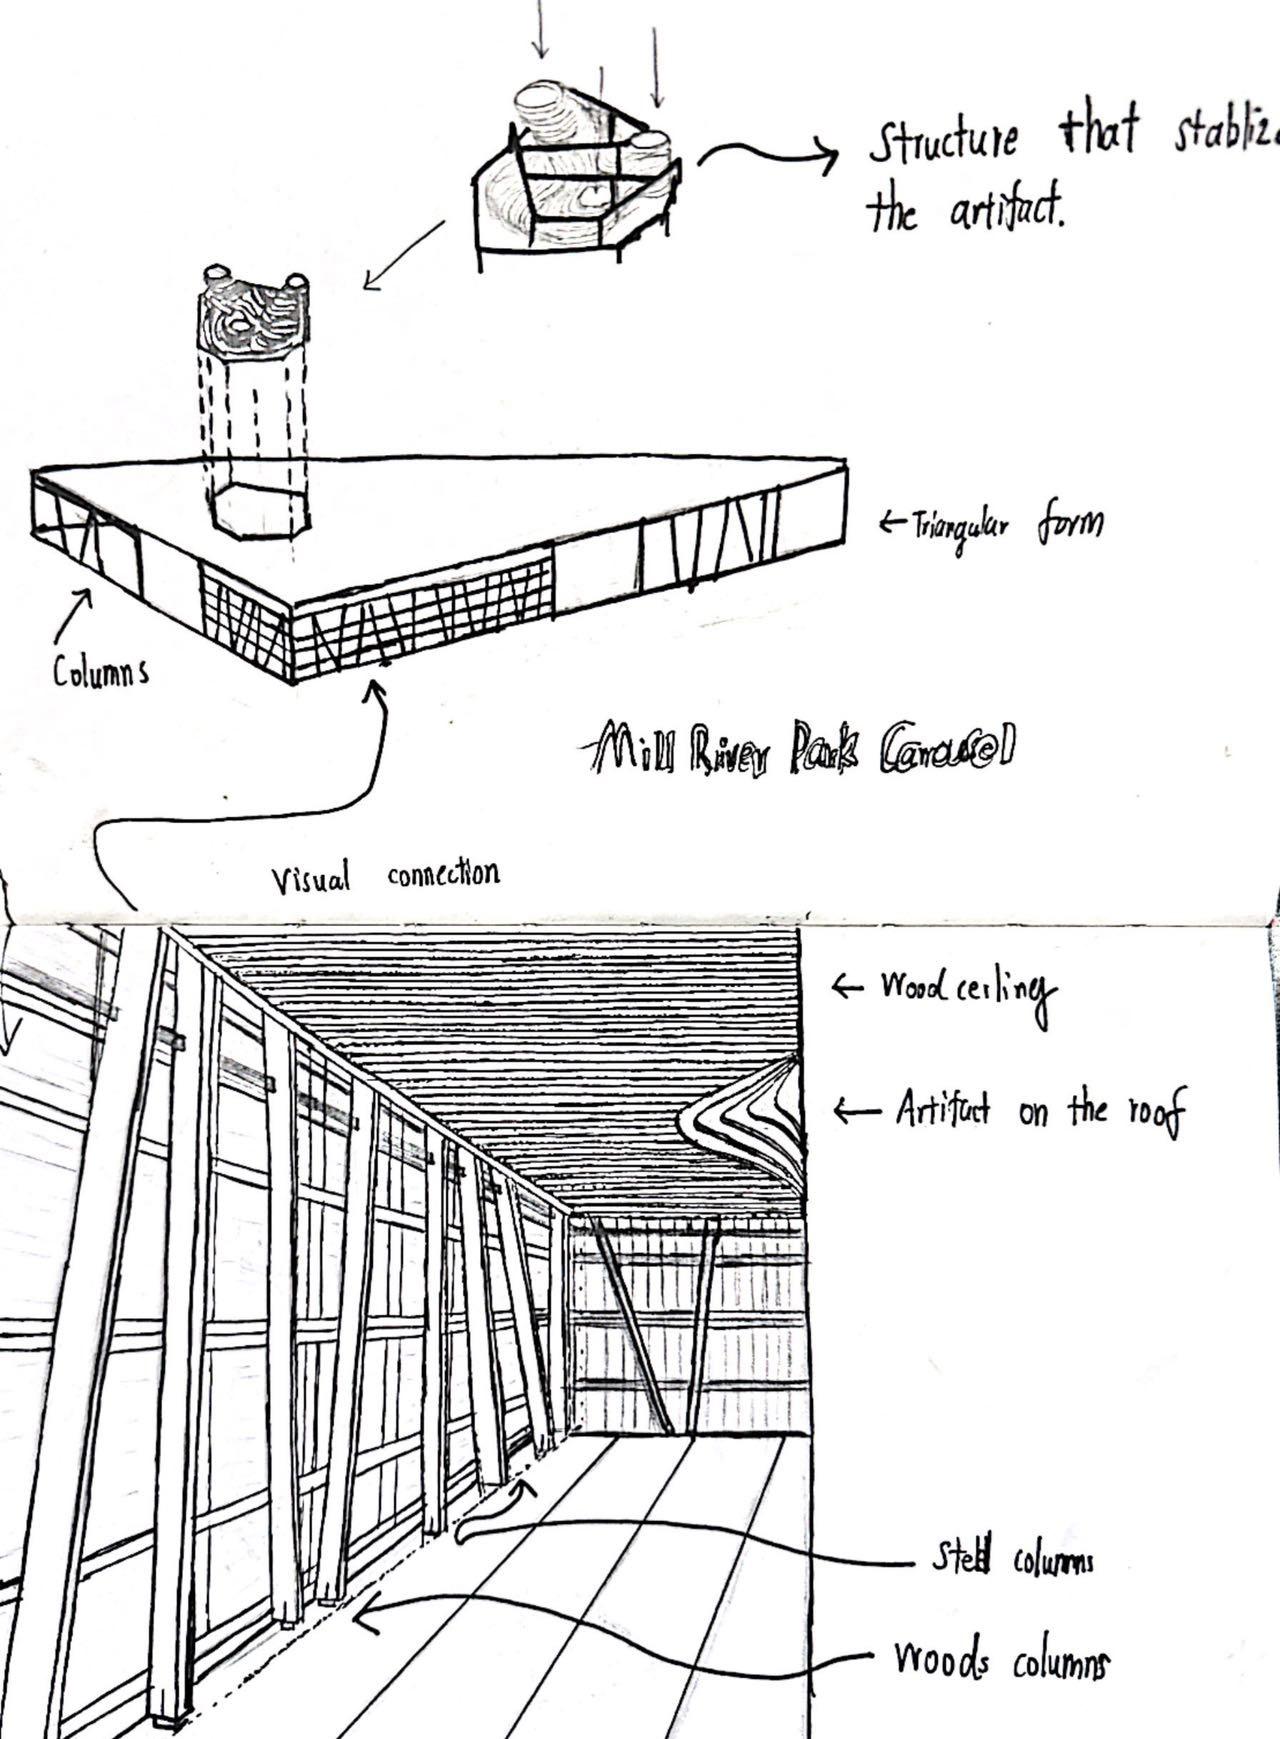 Structure that stablize
the artifact.
← Triangular form
Columns
Mill River Park Carousel
Visual connection
← Wood ceiling
← Artifact on the roof
Steel columns
Woods columns